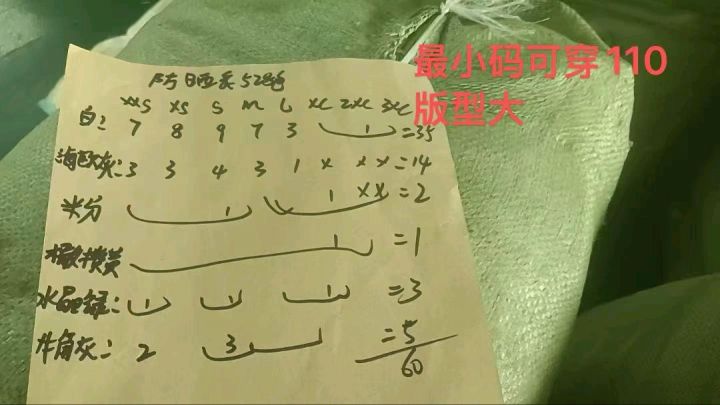 最小码可穿110
版型大
防晒衣52包
xxs xs s m L xL 2xL 3xL
白: 7 8 9 7 3 1 =35
海鸥灰: 3 3 4 3 1 x x x =14
米分 1 1 xx =2
1 =1
水晶绿: 1 1 1 =3
牛角灰: 2 3 =5
60